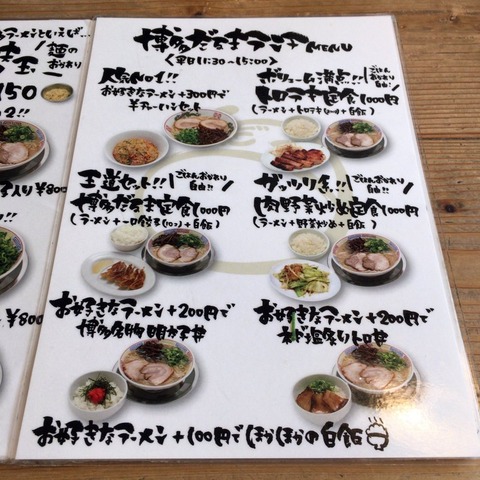 ラーメンといえば…
麺の
おかわり
玉
150
入り ¥800
¥800
博多だるまランチ MENU
〈平日11:30〜15:00〉
人気No1!!
お好きなラーメン+300円で
半チャーハンセット
ボリューム満点!!
ごはん
おかわり
自由!
トロテキ定食1000円
(ラーメン+トロテキ+白飯)
王道セット!!
ごはんおかわり
自由!!
博多だるま定食1000円
(ラーメン+一口餃子(10コ)+白飯)
ガッツリ系!!
ごはんおかわり
自由!!
肉野菜炒め定食1000円
(ラーメン+野菜炒め+白飯)
お好きなラーメン+200円で
博多名物明太子丼
お好きなラーメン+200円で
ネギ塩炙りトロ丼
お好きなラーメン+100円でほかほかの白飯